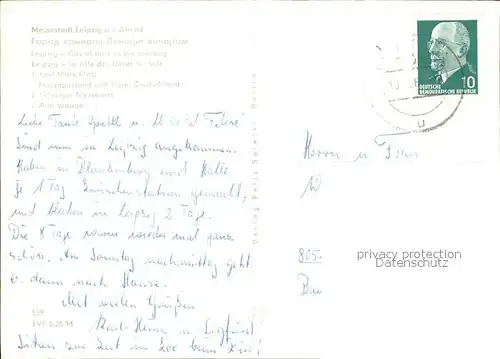 Messestadt Leipzig am Abend
Город ярмарок Лейпциг вечером
Leipzig - City of fairs in the evening
Leipzig - la ville des foires le soir
1. Karl-Marx-Platz
Hauptpostamt und Hotel Deutschland
Leipziger Messeamt
Auerbachs
10
DEUTSCHE
DEMOKRATISCHE REPUBLIK
Liebe Tante u.
Sind nun in Leipzig angekommen.
Haben in Blankenburg und Halle
je 1 Tag Zwischenstation gemacht,
und bleiben in Leipzig 2 Tage.
Die 8 Tage waren wieder mal ganz
schön. Am Sonntag nachmittag geht
es dann nach Hause.
Mit vielen Grüßen
Karl-Heinz u. Siegfried
Sitzen zur Zeit im Zoo beim Bier!
Herrn u. Frau
W
805
privacy protection
Datenschutz
EVP 0,25 M
Verlag Felix Setecki Berlin